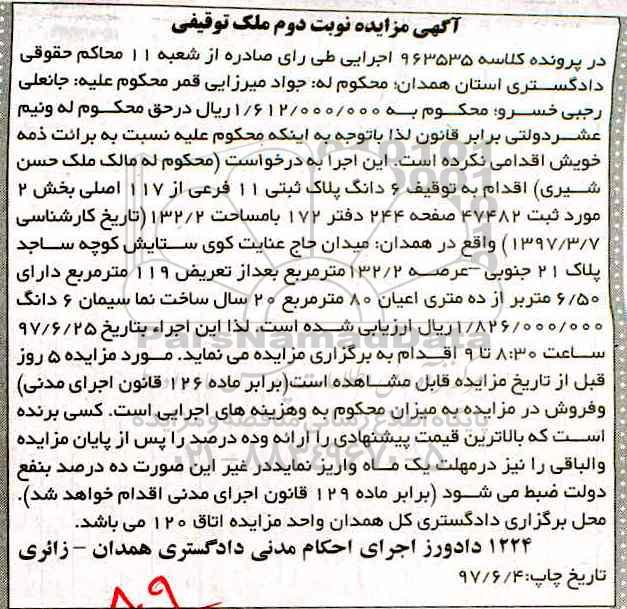 آگهی مزایده نوبت دوم ملک توقیفی
در پرونده کلاسه ۹۶۳۵۳۵ اجرایی طی رای صادره از شعبه ۱۱ محاکم حقوقی
دادگستری استان همدان: محکوم له: جواد میرزایی قمر محکوم علیه: جانعلی
رجبی خسرو: محکوم به ۱/۶۱۲/۰۰۰/۰۰۰ریال درحق محکوم له ونیم
عشردولتی برابر قانون لذا باتوجه به اینکه محکوم علیه نسبت به برائت ذمه
خویش اقدامی نکرده است. این اجرا به درخواست (محکوم له مالک ملک حسن
شیری) اقدام به توقیف ۶ دانگ پلاک ثبتی ۱۱ فرعی از ۱۱۷ اصلی بخش ۲
مورد ثبت ۴۷۴۸۲ صفحه ۲۴۴ دفتر ۱۷۲ بامساحت ۱۳۲/۲(تاریخ کارشناسی
۱۳۹۷/۳/۷) واقع در همدان: میدان حاج عنایت کوی ستایش کوچه ساجد
پلاک ۲۱ جنوبی –عرصه ۱۳۲/۲مترمربع بعداز تعریض ۱۱۹ مترمربع دارای
۶/۵۰ متربر از ده متری اعیان ۸۰ مترمربع ۲۰ سال ساخت نما سیمان ۶ دانگ
۱/۸۲۶/۰۰۰/۰۰۰ریال ارزیابی شده است. لذا این اجراء بتاریخ ۹۷/۶/۲۵
ساعت ۸:۳۰ تا ۹ اقدام به برگزاری مزایده می نماید. مورد مزایده ۵ روز
قبل از تاریخ مزایده قابل مشاهده است(برابر ماده ۱۲۶ قانون اجرای مدنی)
وفروش در مزایده به میزان محکوم به وهزینه های اجرایی است. کسی برنده
است که بالاترین قیمت پیشنهادی را ارائه وده درصد را پس از پایان مزایده
والباقی را نیز درمهلت یک ماه واریز نمایددر غیر این صورت ده درصد بنفع
دولت ضبط می شود (برابر ماده ۱۲۹ قانون اجرای مدنی اقدام خواهد شد).
محل برگزاری دادگستری کل همدان واحد مزایده اتاق ۱۲۰ می باشد.
۱۲۲۴ دادورز اجرای احکام مدنی دادگستری همدان – زائری
تاریخ چاپ:۹۷/۶/۴
۸۹
ParsNamadData
پایگاه اطلاع رسانی مناقصه و مزایده
۰۲۱-۸۸۳۴۹۶۷۰-۵